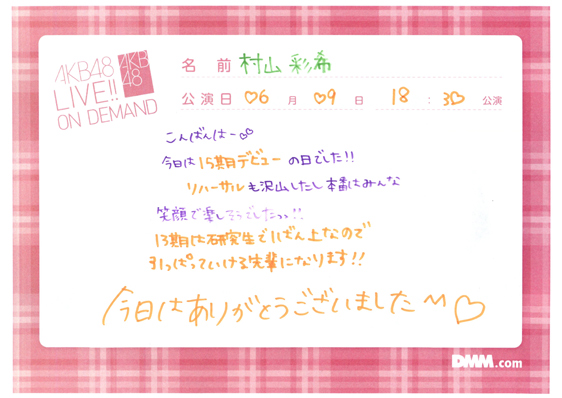 AKB48
LIVE!!
ON DEMAND
AKB
48
名 前 村山 彩希
公演日 06 月 09 日 18 : 30 公演
こんばんはー♡♡
今日は15期デビューの日でした!!
リハーサルも沢山したし本番はみんな
笑顔で楽しそうでしたっっ!!
13期は研究生で1ばん上なので
引っぱっていける先輩になります!!
今日はありがとうございました〜♡
DMM.com